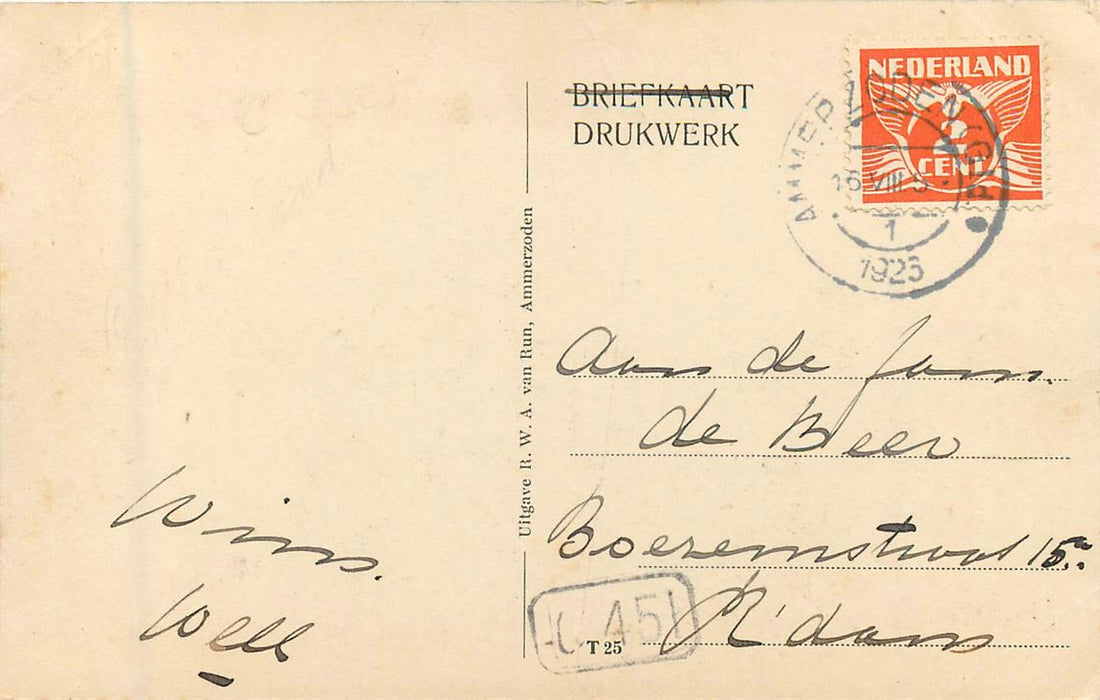 BRIEFKAART
DRUKWERK
NEDERLAND
2
CENT
AMMERZODEN (GLD)
16 VIII
1
1926
Aan de fam.
de Beer
Boezemstraat 15
R'dam
Wim.
Well
Uitgave R. W. A. van Run, Ammerzoden
T 25
451